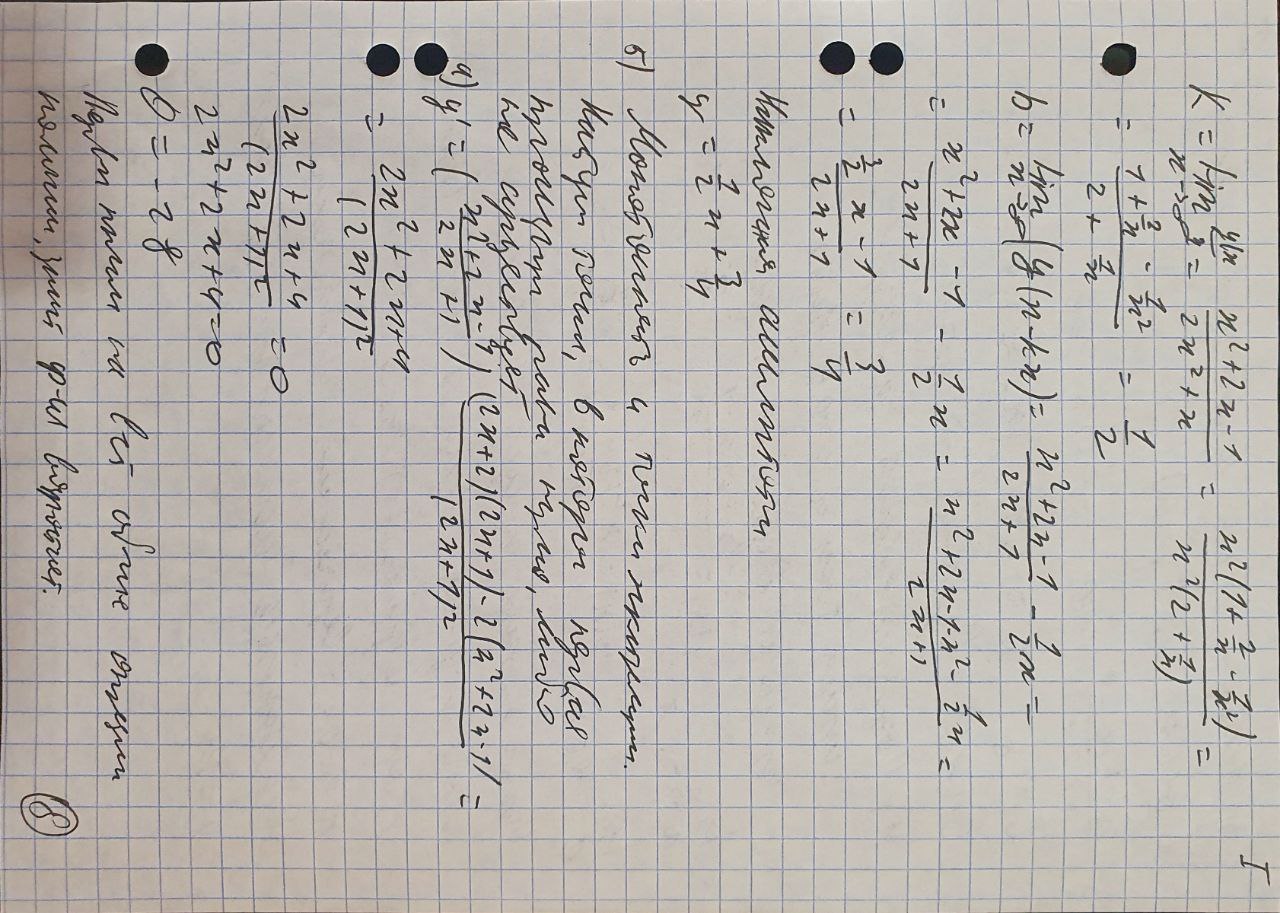 I
K = lim x→∞ y(x)/x = (x²+2x-1)/(2x²+x) = x²(1+2/x-1/x²)/(x²(2+1/x)) =
= (1+2/x-1/x²)/(2+1/x) = 1/2
b = lim x→∞ (y(x-kx) = (x²+2x-1)/(2x+1) - 1/2x =
= (x²+2x-1)/(2x+1) - 1/2x = (x²+2x-1-x²-1/2x)/(2x+1) =
= (3/2x-1)/(2x+1) = 3/4
Наклонная асимптота
y = 1/2x + 3/4
5) Монотонность и точки экстремума.
Найдем точки, в которых первая
производная равна нулю, либо
не существует
a) y' = ((x²+2x-1)/(2x+1)) ((2x+2)(2x+1)-2(x²+2x-1))/(2x+1)² =
= (2x²+2x+4)/(2x+1)²
(2x²+2x+4)/(2x+1)² = 0
2x²+2x+4=0
D = -28
на всей области
значит ф-ия возрастает.
8